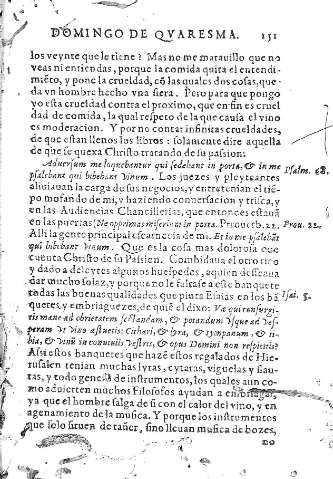 DOMINGO DE QVARESMA. 151
los veynte que le tiene? Mas no me marauillo que no
veas ni entiendas, porque la comida quita el entendi-
miẽto, y pone la crueldad, cõ las quales dos cosas, que-
da vn hombre hecho vna fiera. Pero para que pongo
yo esta crueldad contra el proximo, que en fin es cruel
dad de comida, la qual respeto de la que causa el vino
es moderacion. Y por no contar infinitas crueldades,
de que estan llenos los libros: solamente dire aquella
de que se quexa Christo tratando de su passion:
Aduersum me loquebantur qui sedebant in porta, & in me Psalm. 68.
psalebant qui bibebant vinum. Los juezes y pleyteantes
aliuiauan la carga de sus negocios, y entretenian el tiẽ-
po mofando de mi, y haziendo conuersacion y trisca, y
en las Audiencias Chancillerias, que entonces estauã
en las puertas (Ne opprimas miserum in porta. Prouerb. 22. Prou. 22.
Alli la gente principal escarnecia de mi. Et in me psalebãt
qui bibebant vinum. Que es la cosa mas dolorosa que
cuenta Christo de su Passion. Combidaua el otro rico
y dado a deleytes algunos huespedes, a quien desseaua
dar mucho solaz, y porque no le faltasse a este banquete
todas las buenas qualidades que pinta Esaias en los bã Isai. 5.
quetes, y embriaguezes, de quiẽ el dixo: Væ qui consurgi-
tis mane ad ebrietatem sectandam, & potandum vsque ad ves-
peram vt vino æstuetis: Cithara, & lyra, & tympanum, & ti-
bia, & vinũ in conuiuijs vestris, & opus Domini non respicitis?
Assi estos banquetes que hazẽ estos regalados de Hie-
rusalen tenian muchas lyras, cytaras, viguelas y flau-
tas, y todo genero de instrumentos, los quales aun co-
mo aduierten muchos Filosofos ayudan a embriagar,
ya que el hombre salga de si con el calor del vino, y en
agenamiento de la musica. Y porque los instrumentos
que solo siruen de tañer, sino lleuan musica de bozes,
no